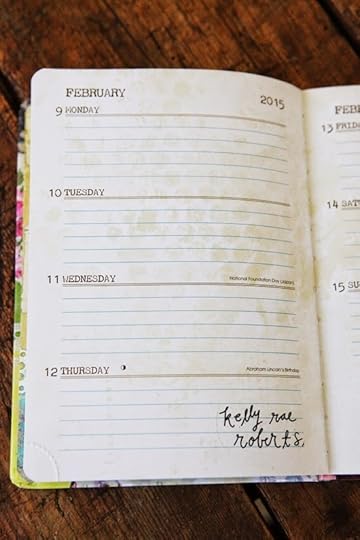 FEBRUARY
2015
9 MONDAY
10 TUESDAY
11 WEDNESDAY
National Foundation Day (Japan)
12 THURSDAY
Abraham Lincoln's Birthday
kelly rae
roberts
13
14
15